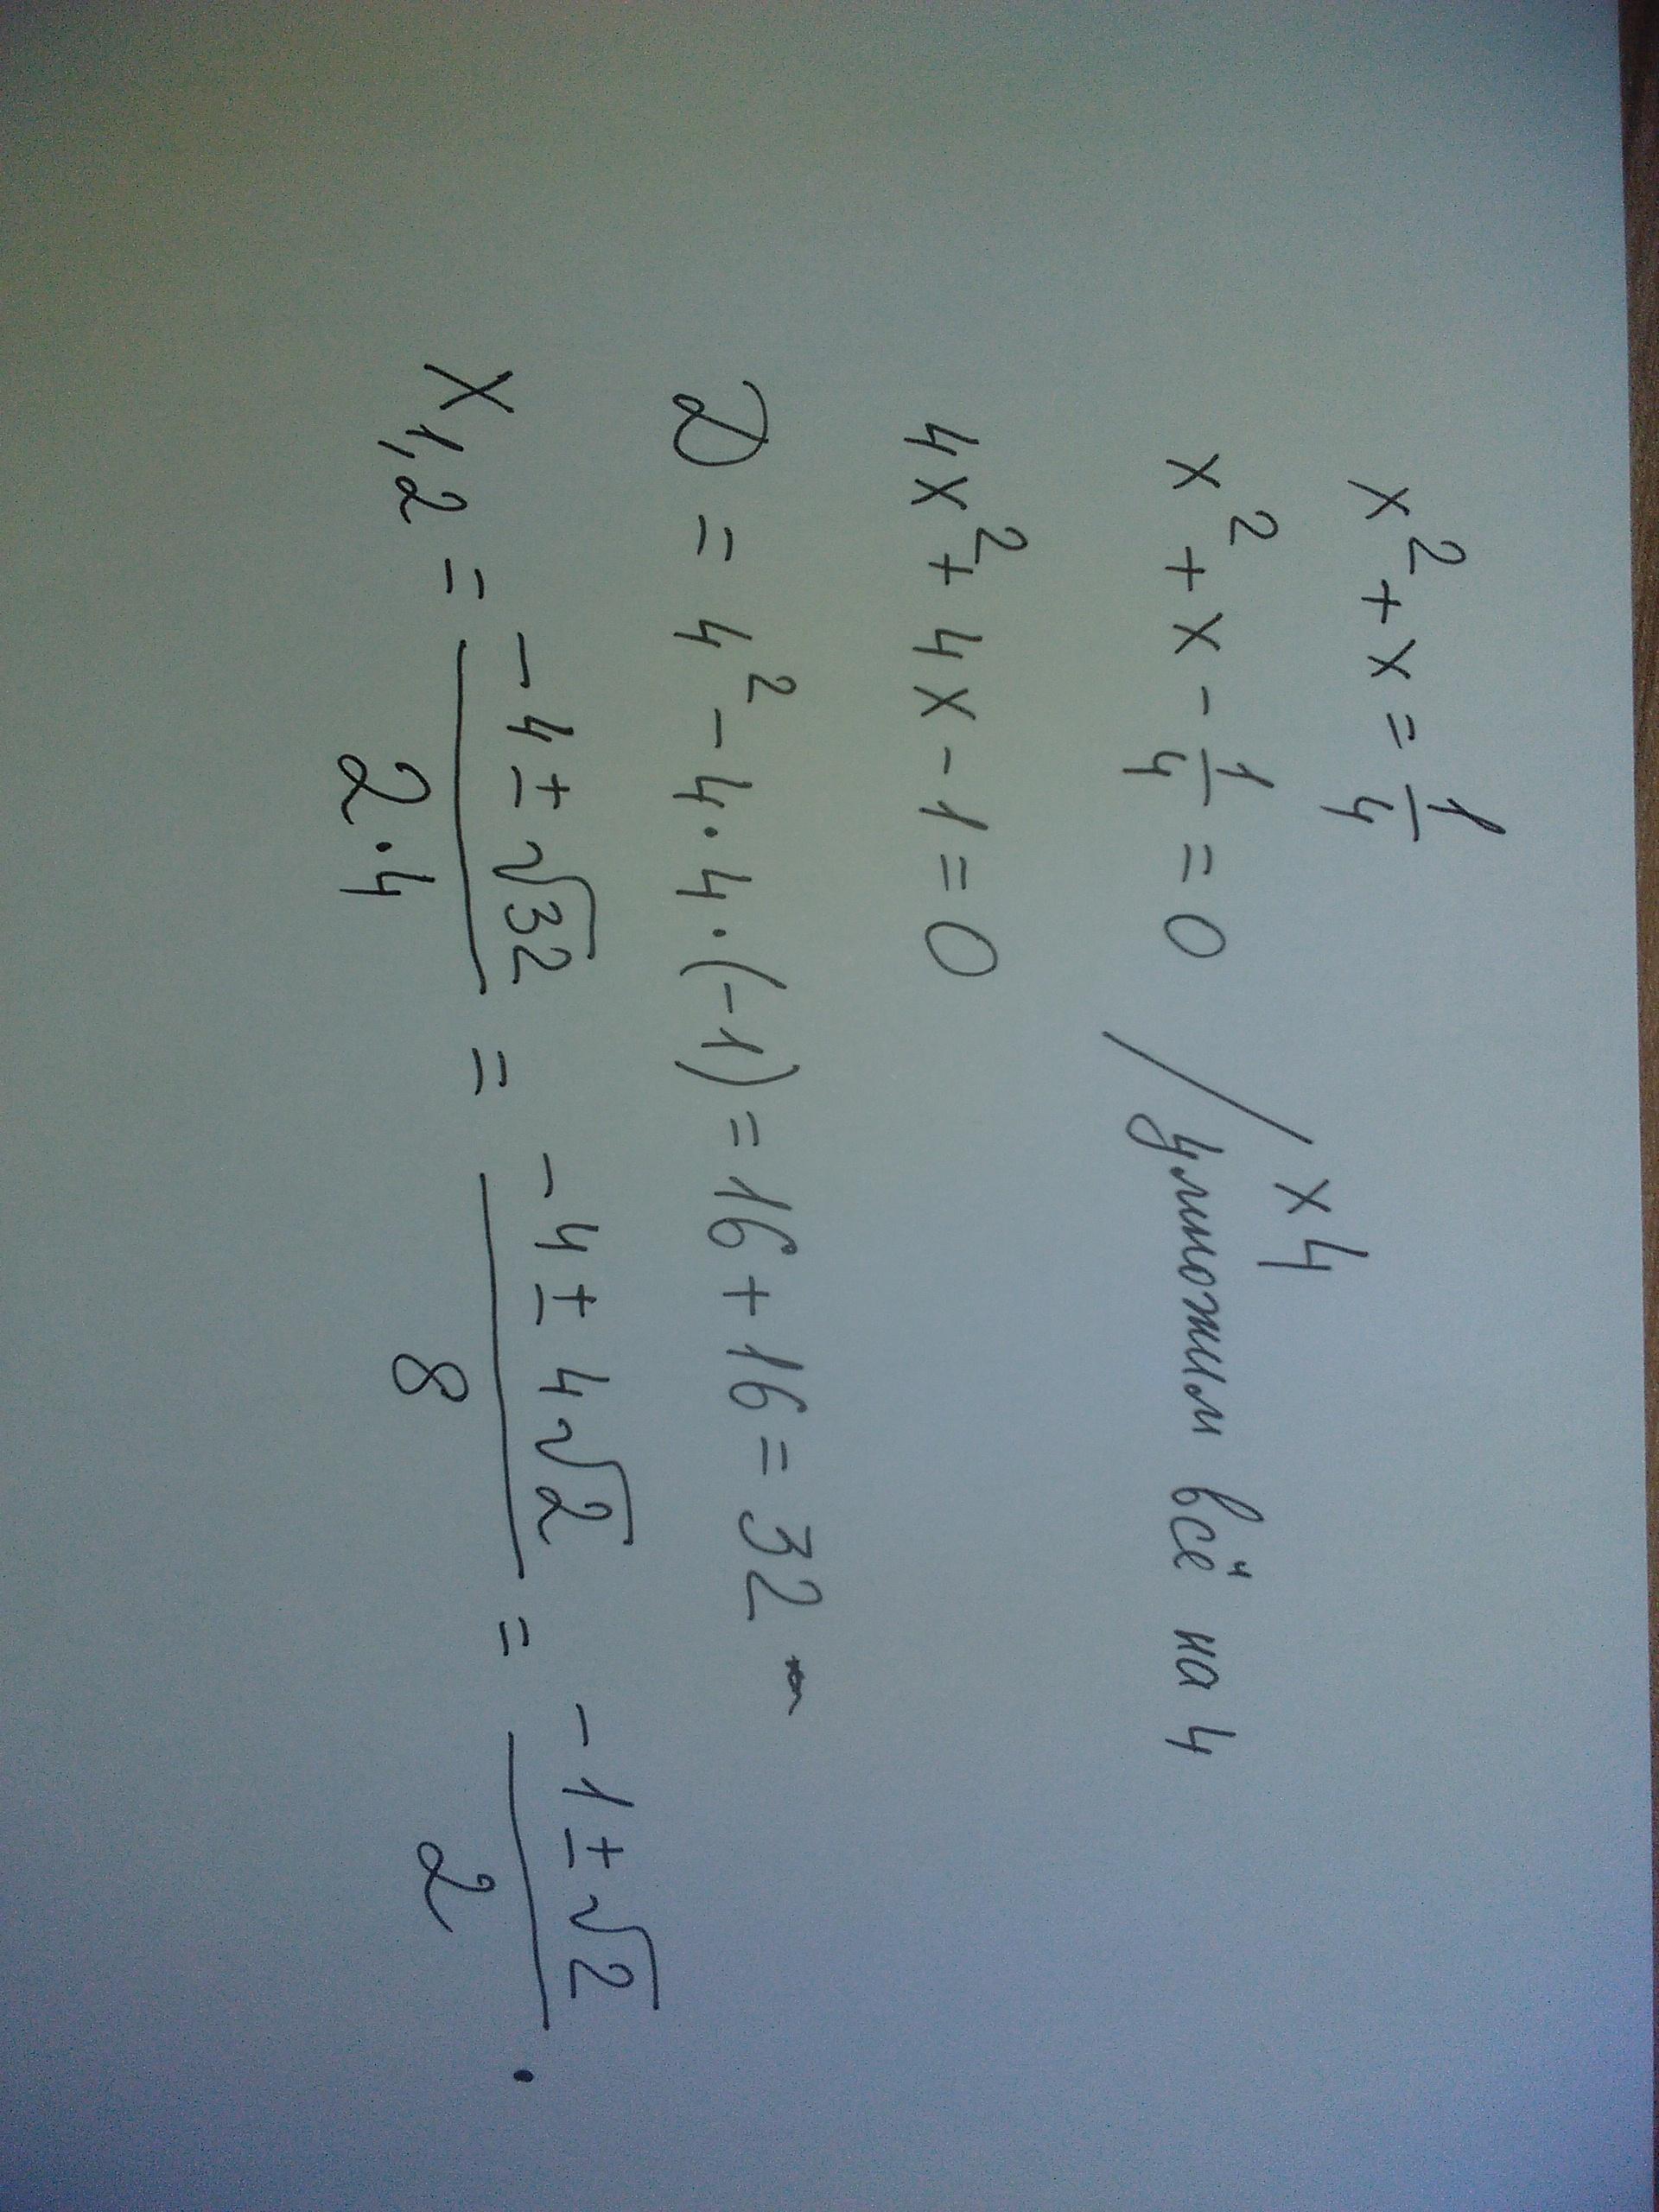 x² + x = 1/4
x² + x - 1/4 = 0 / x4 умножим всё на 4
4x² + 4x - 1 = 0
D = 4² - 4·4·(-1) = 16 + 16 = 32
x₁,₂ = (-4 ± √32)/(2·4) = (-4 ± 4√2)/8 = (-1 ± √2)/2.